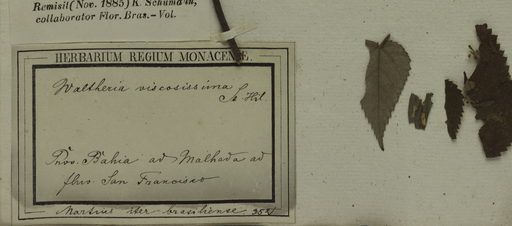 Remisit (Nov. 1885) K. Schumann,
collaborator Flor. Bras. - Vol.
HERBARIUM REGIUM MONACENSE.
Waltheria viscosissima
St. Hil.
Prov. Bahia ad Malhada ad
fluv San Francisco
Martius iter brasiliense